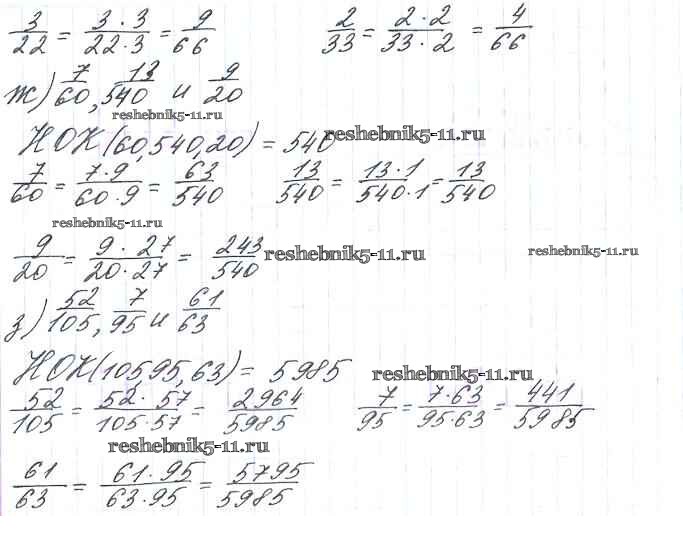 3/22 = 3·3/22·3 = 9/66    2/33 = 2·2/33·2 = 4/66
ж) 7/60, 13/540 и 9/20
reshebnik5-11.ru
НОК(60,540,20) = 540
reshebnik5-11.ru
7/60 = 7·9/60·9 = 63/540    13/540 = 13·1/540·1 = 13/540
reshebnik5-11.ru
9/20 = 9·27/20·27 = 243/540
reshebnik5-11.ru
reshebnik5-11.ru
з) 52/105, 7/95 и 61/63
НОК(10595,63) = 5985
reshebnik5-11.ru
52/105 = 52·57/105·57 = 2964/5985    7/95 = 7·63/95·63 = 441/5985
reshebnik5-11.ru
61/63 = 61·95/63·95 = 5795/5985